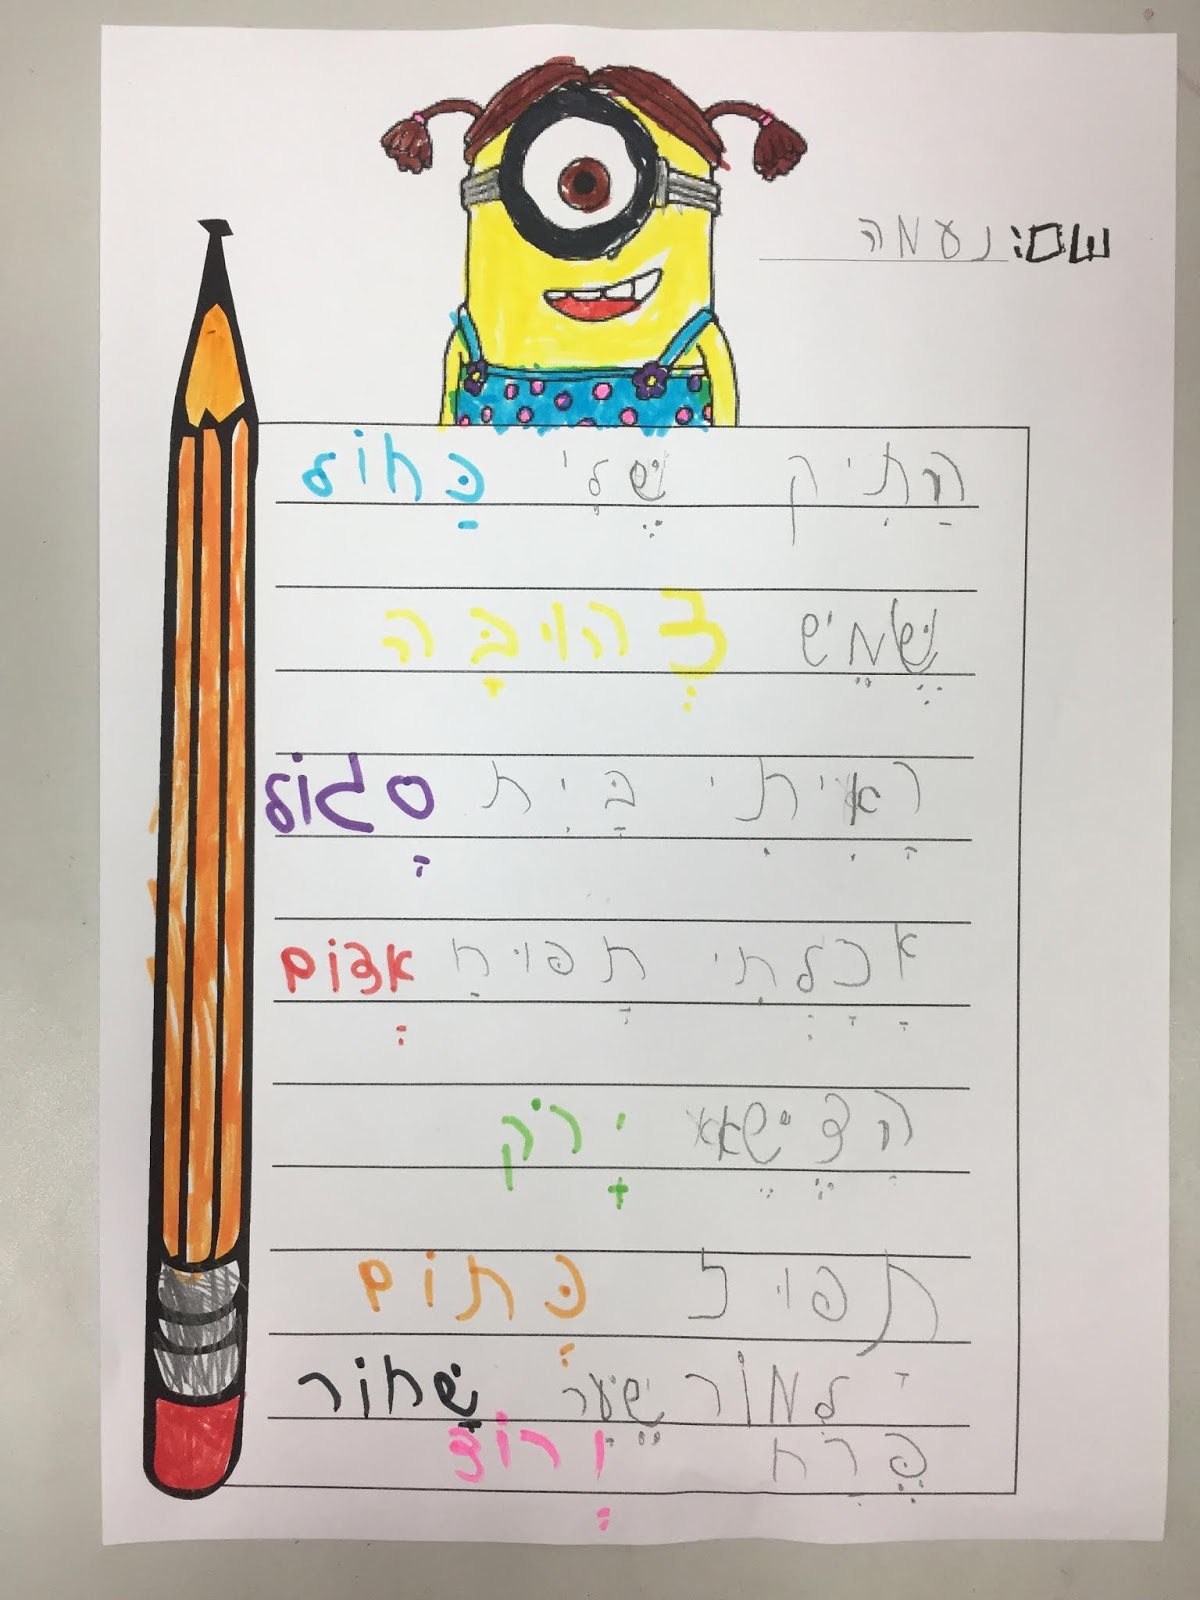 שם: נעמה
הַתִיק שֶׁלִי כַּחוֹל
שֶׁמֶשׁ צְהוּבָּה
רָאִיתִי בַּיִת סָגוֹל
אָכַלְתִי תָפוּחַ אָדוֹם
הַדֶשֶׁא יָרֹק
תפוז כָּתוֹם
לִמוֹר שֵׁעָר שָׁחוֹר
פֶּרַח וָרוֹד